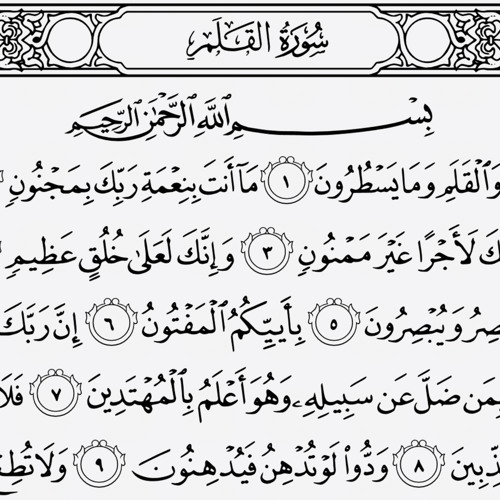 سُورَةُ القَلَمِ
بِسْمِ ٱللَّهِ ٱلرَّحْمَٰنِ ٱلرَّحِيمِ
وَٱلْقَلَمِ وَمَا يَسْطُرُونَ ١ مَآ أَنتَ بِنِعْمَةِ رَبِّكَ بِمَجْنُونٍ
كَ لَأَجْرًا غَيْرَ مَمْنُونٍ ٣ وَإِنَّكَ لَعَلَىٰ خُلُقٍ عَظِيمٍ
صِرُ وَيُبْصِرُونَ ٥ بِأَييِّكُمُ ٱلْمَفْتُونُ ٦ إِنَّ رَبَّكَ
بِمَن ضَلَّ عَن سَبِيلِهِۦ وَهُوَ أَعْلَمُ بِٱلْمُهْتَدِينَ ٧ فَلَا
ذِّبِينَ ٨ وَدُّوا۟ لَوْ تُدْهِنُ فَيُدْهِنُونَ ٩ وَلَا تُطِعْ